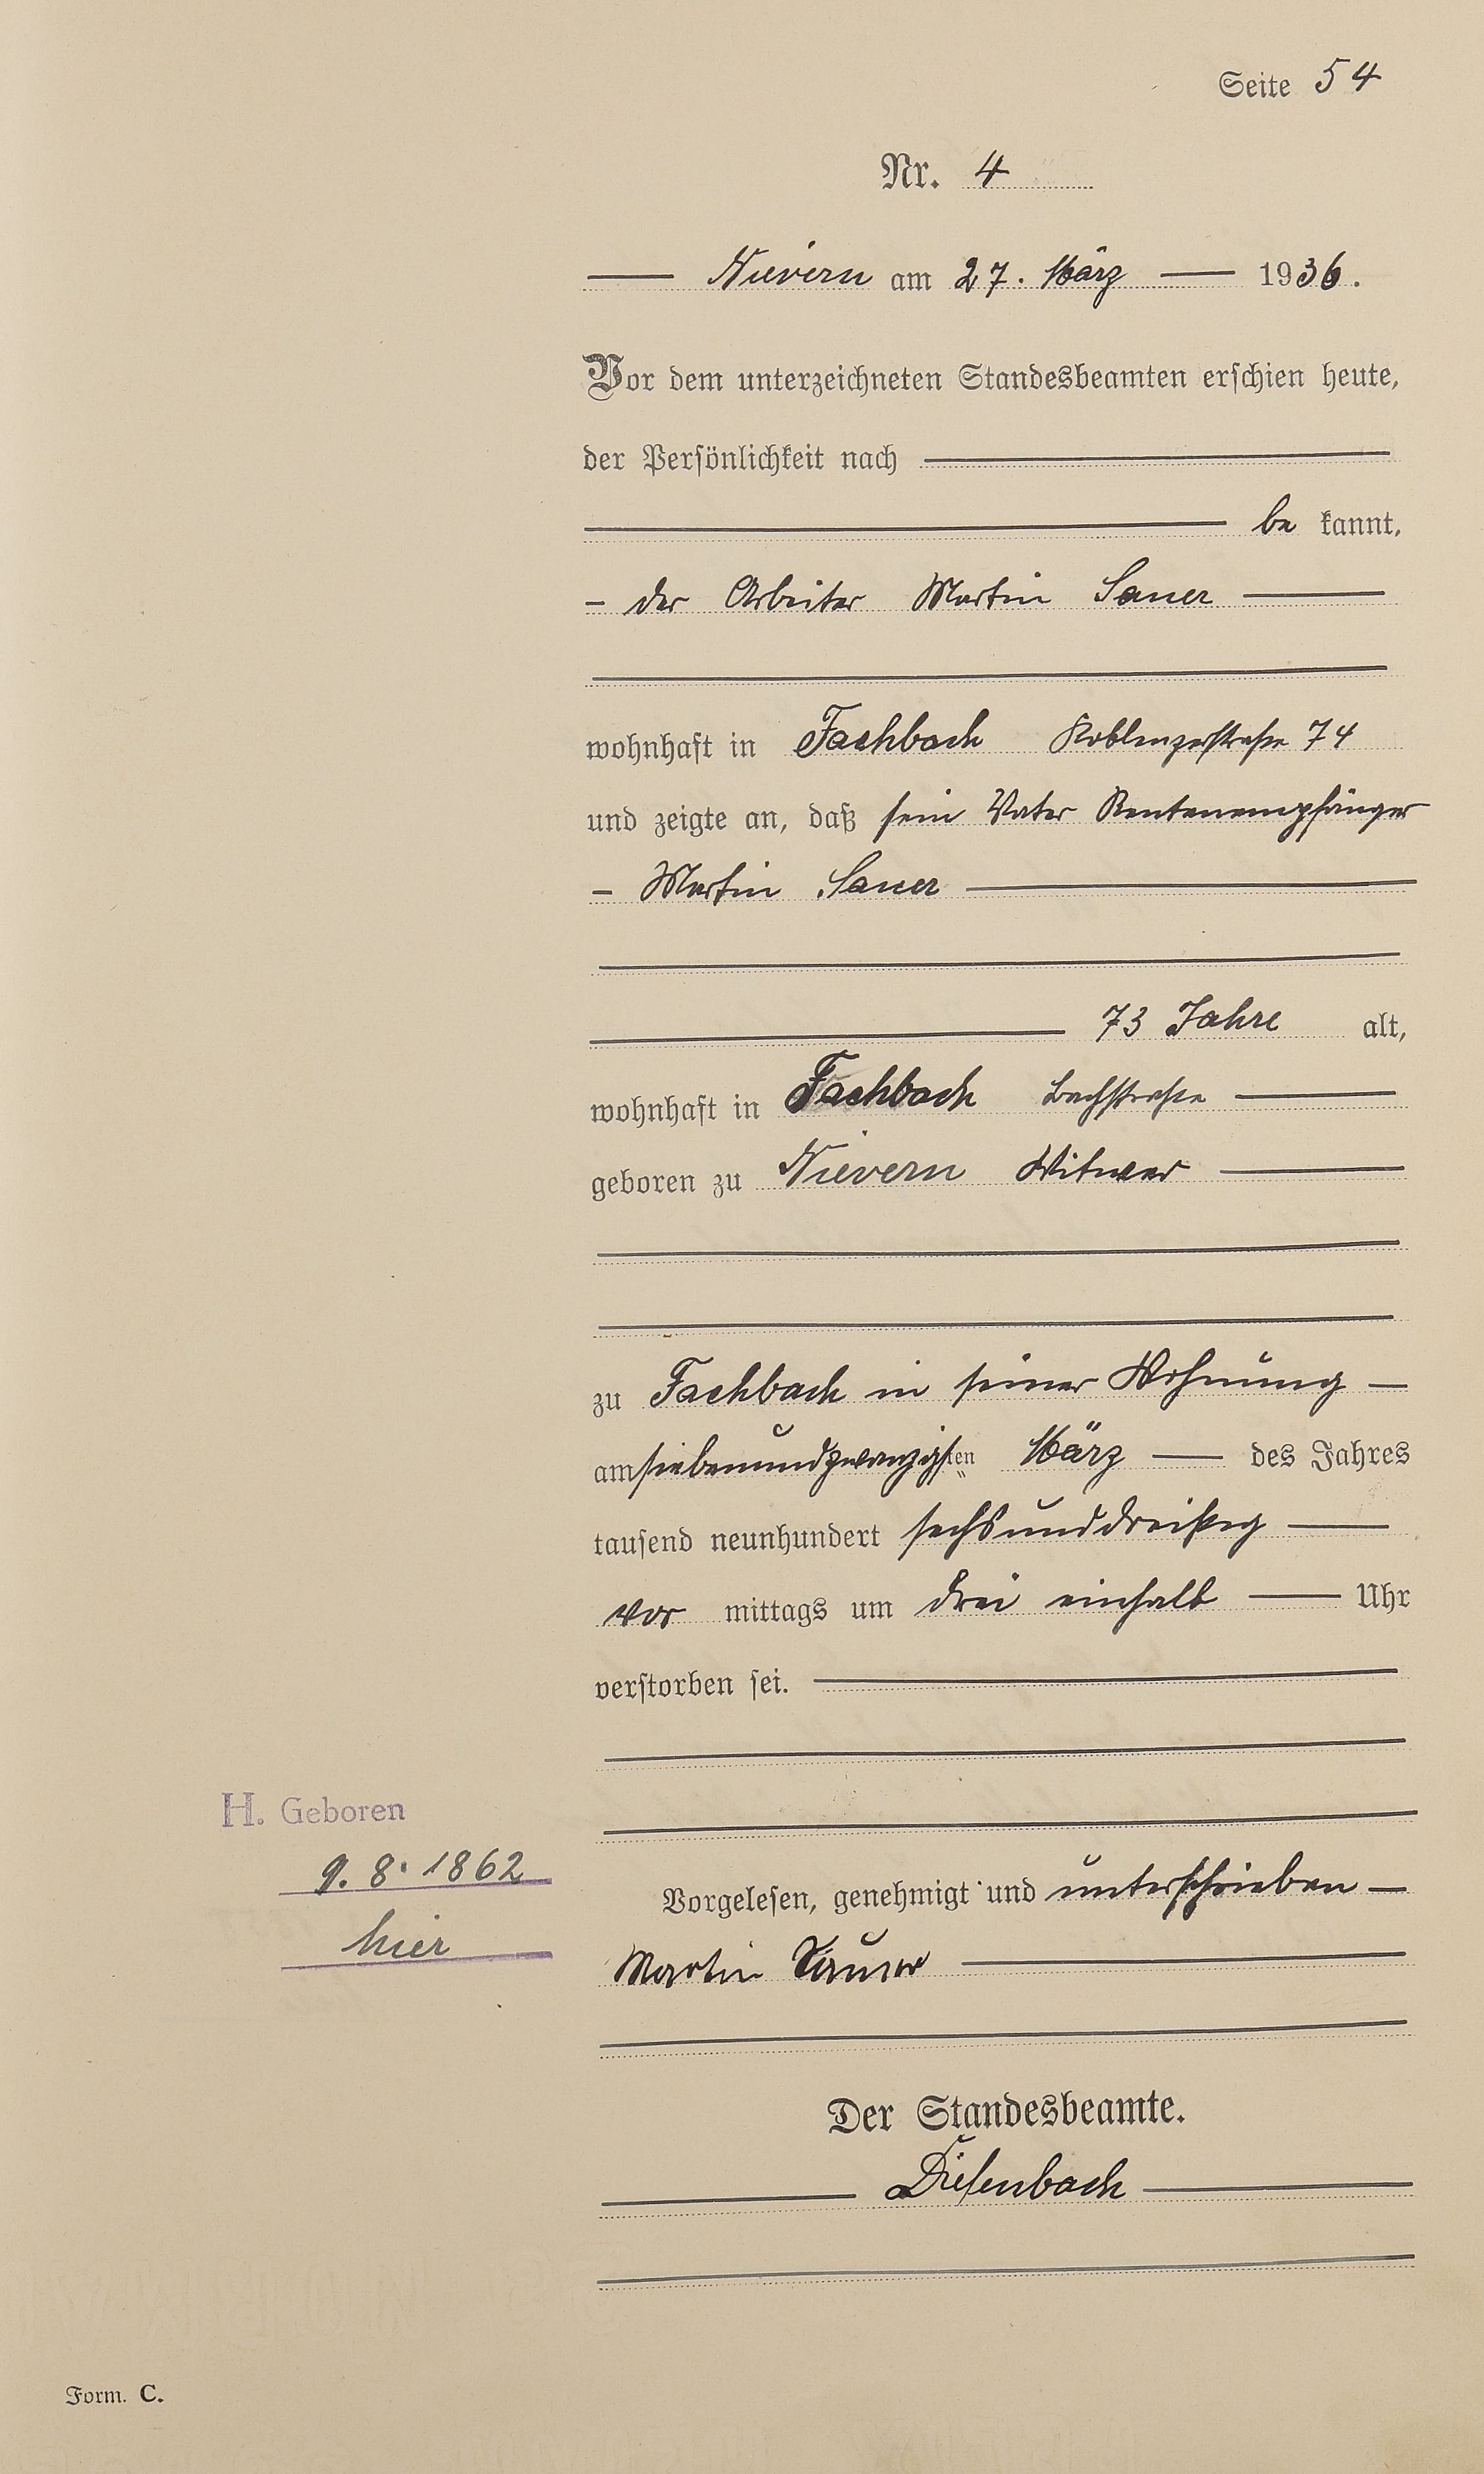 Seite 54
Nr. 4
Nievern am 27. März 1936.
Vor dem unterzeichneten Standesbeamten erschien heute,
der Persönlichkeit nach
be kannt,
- der Arbeiter Martin Sauer
wohnhaft in Fachbach Koblenzerstraße 74
und zeigte an, daß sein Vater Rentenempfänger
- Martin Sauer
73 Jahre alt,
wohnhaft in Fachbach Bachstraße
geboren zu Nievern Witwer
zu Fachbach in seiner Wohnung
am siebenundzwanzigsten März des Jahres
tausend neunhundert sechsunddreißig
vor mittags um drei einhalb Uhr
verstorben sei.
H. Geboren
9. 8. 1862
hier
Vorgelesen, genehmigt und unterschrieben
Martin Sauer
Der Standesbeamte.
Diefenbach
Form. C.